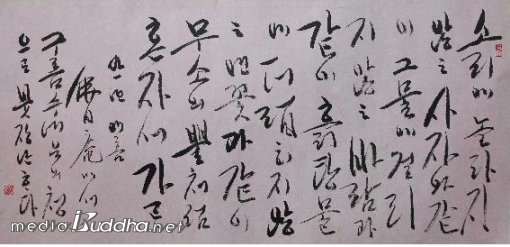 소리에 놀라지
않는 사자와 같
이 그물에 걸리
지 않는 바람과
같이 흙탕물
에 더럽히지 않
는 연꽃과 같이
무소의 뿔처럼
혼자서 가라
佛日庵에서
으로 붓장난 하다
mediaBuddha.net